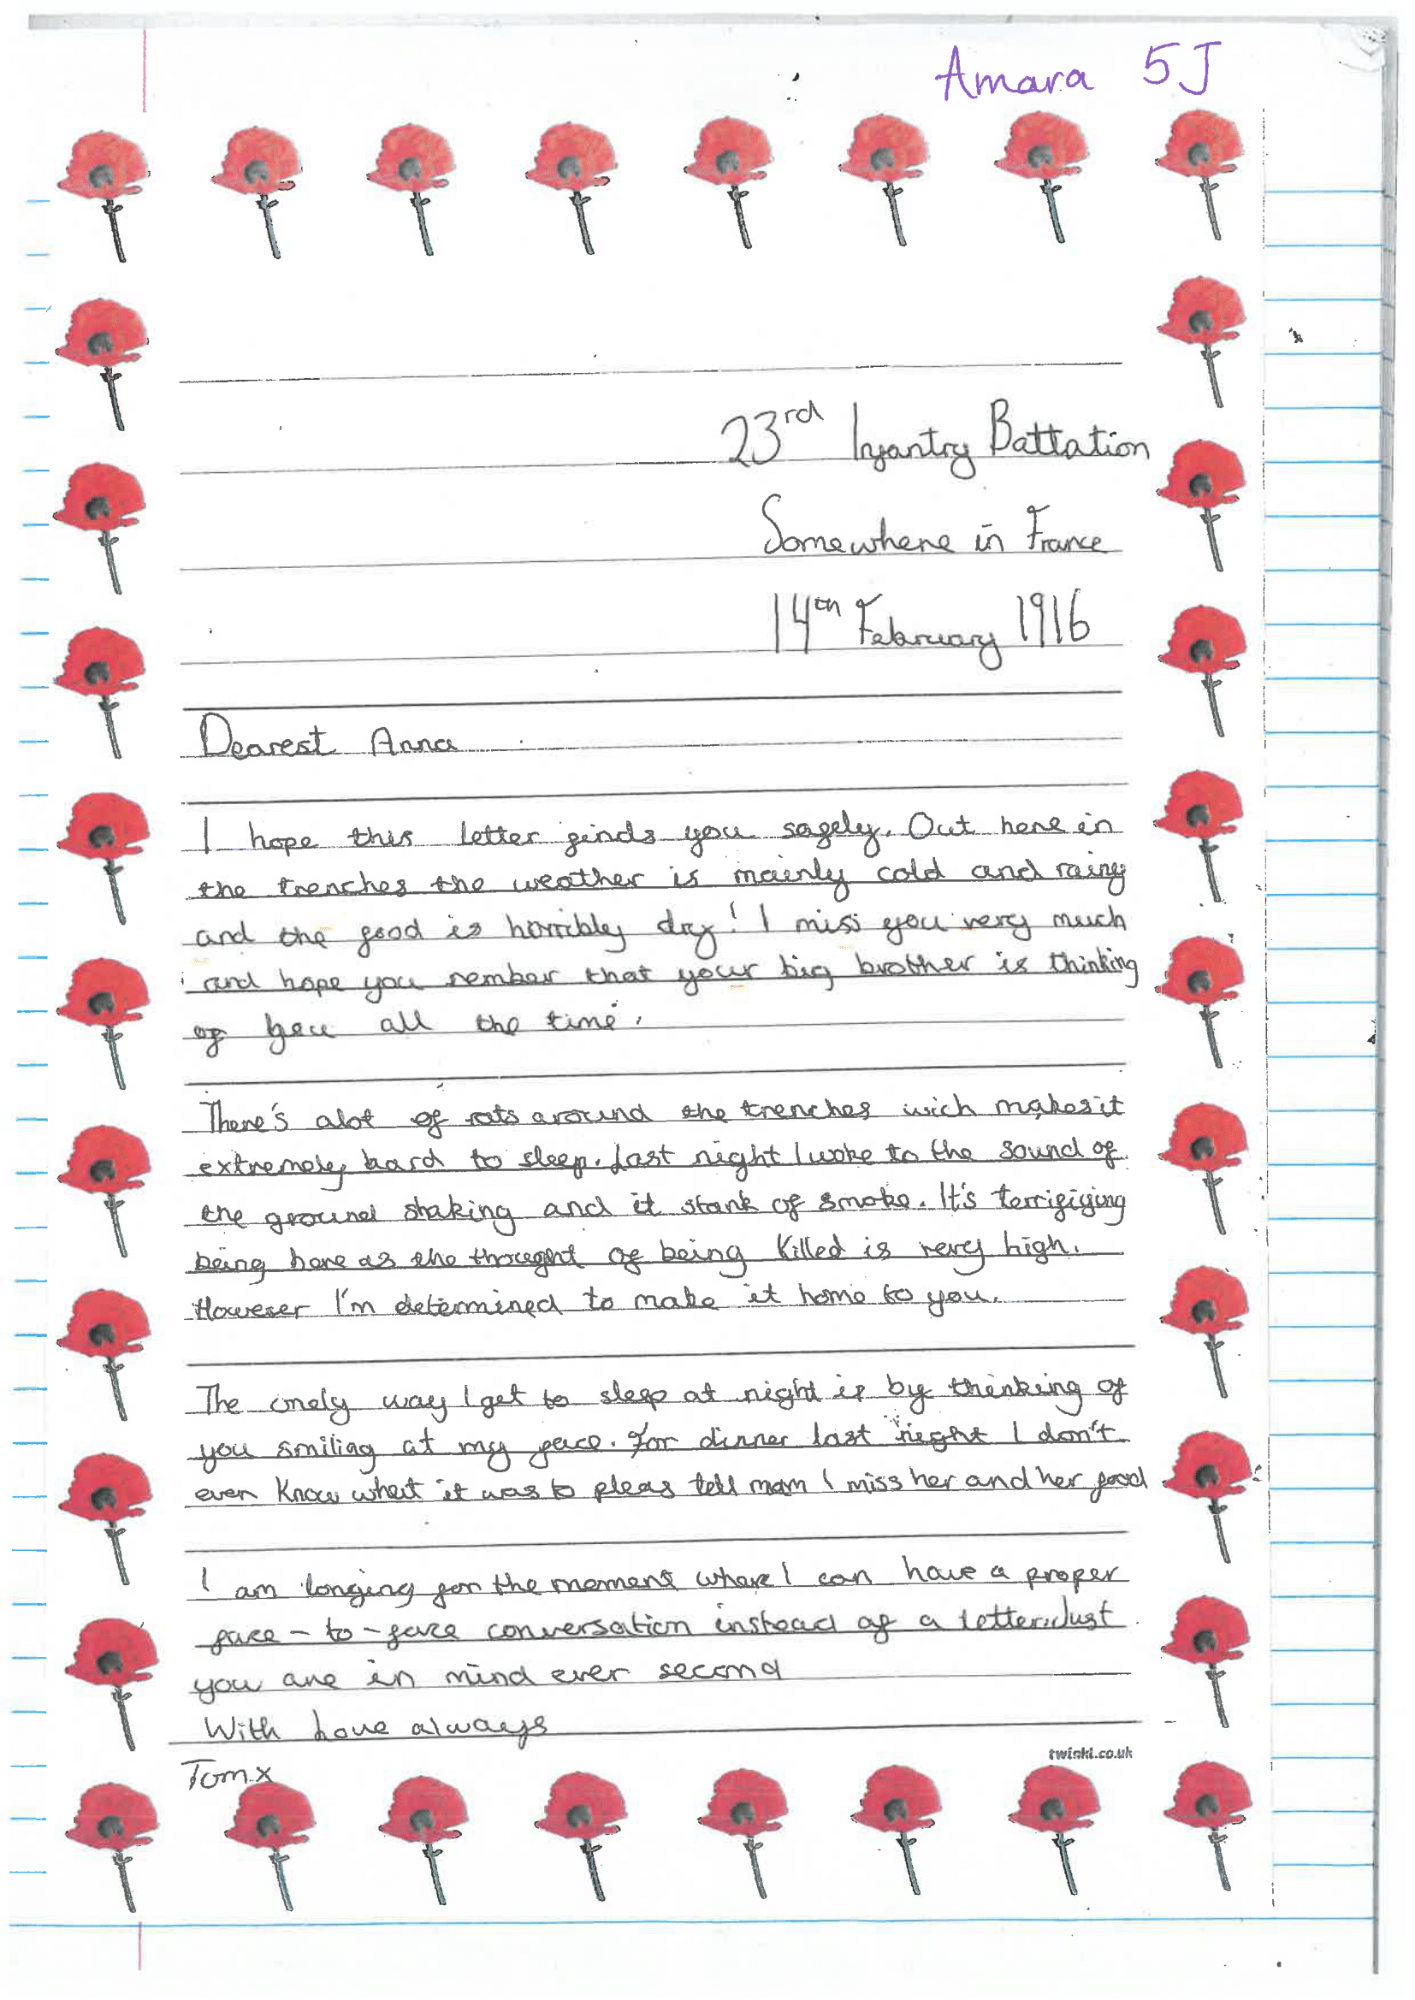 Amara 5J
23rd Infantry Battation
Somewhere in France
14th February 1916
Dearest Anna
I hope this letter finds you safely. Out here in
the trenches the weather is mainly cold and rainy
and the food is horribly dry! I miss you very much
and hope you rember that your big brother is thinking
of you all the time.
There's alot of rats around the trenches wich makes it
extremely hard to sleep. Last night I woke to the sound of
the ground shaking and it stank of smoke. It's terrifiying
being here as the thought of being killed is very high.
However I'm determined to make it home to you.
The onely way I get to sleep at night is by thinking of
you smiling at my face. For dinner last night I don't
even know what it was to pleas tell mam I miss her and her food
I am longing for the moment where I can have a proper
face-to-face conversation instead of a letter. Just
you are in mind ever second
With love always
Tom x
twinkl.co.uk